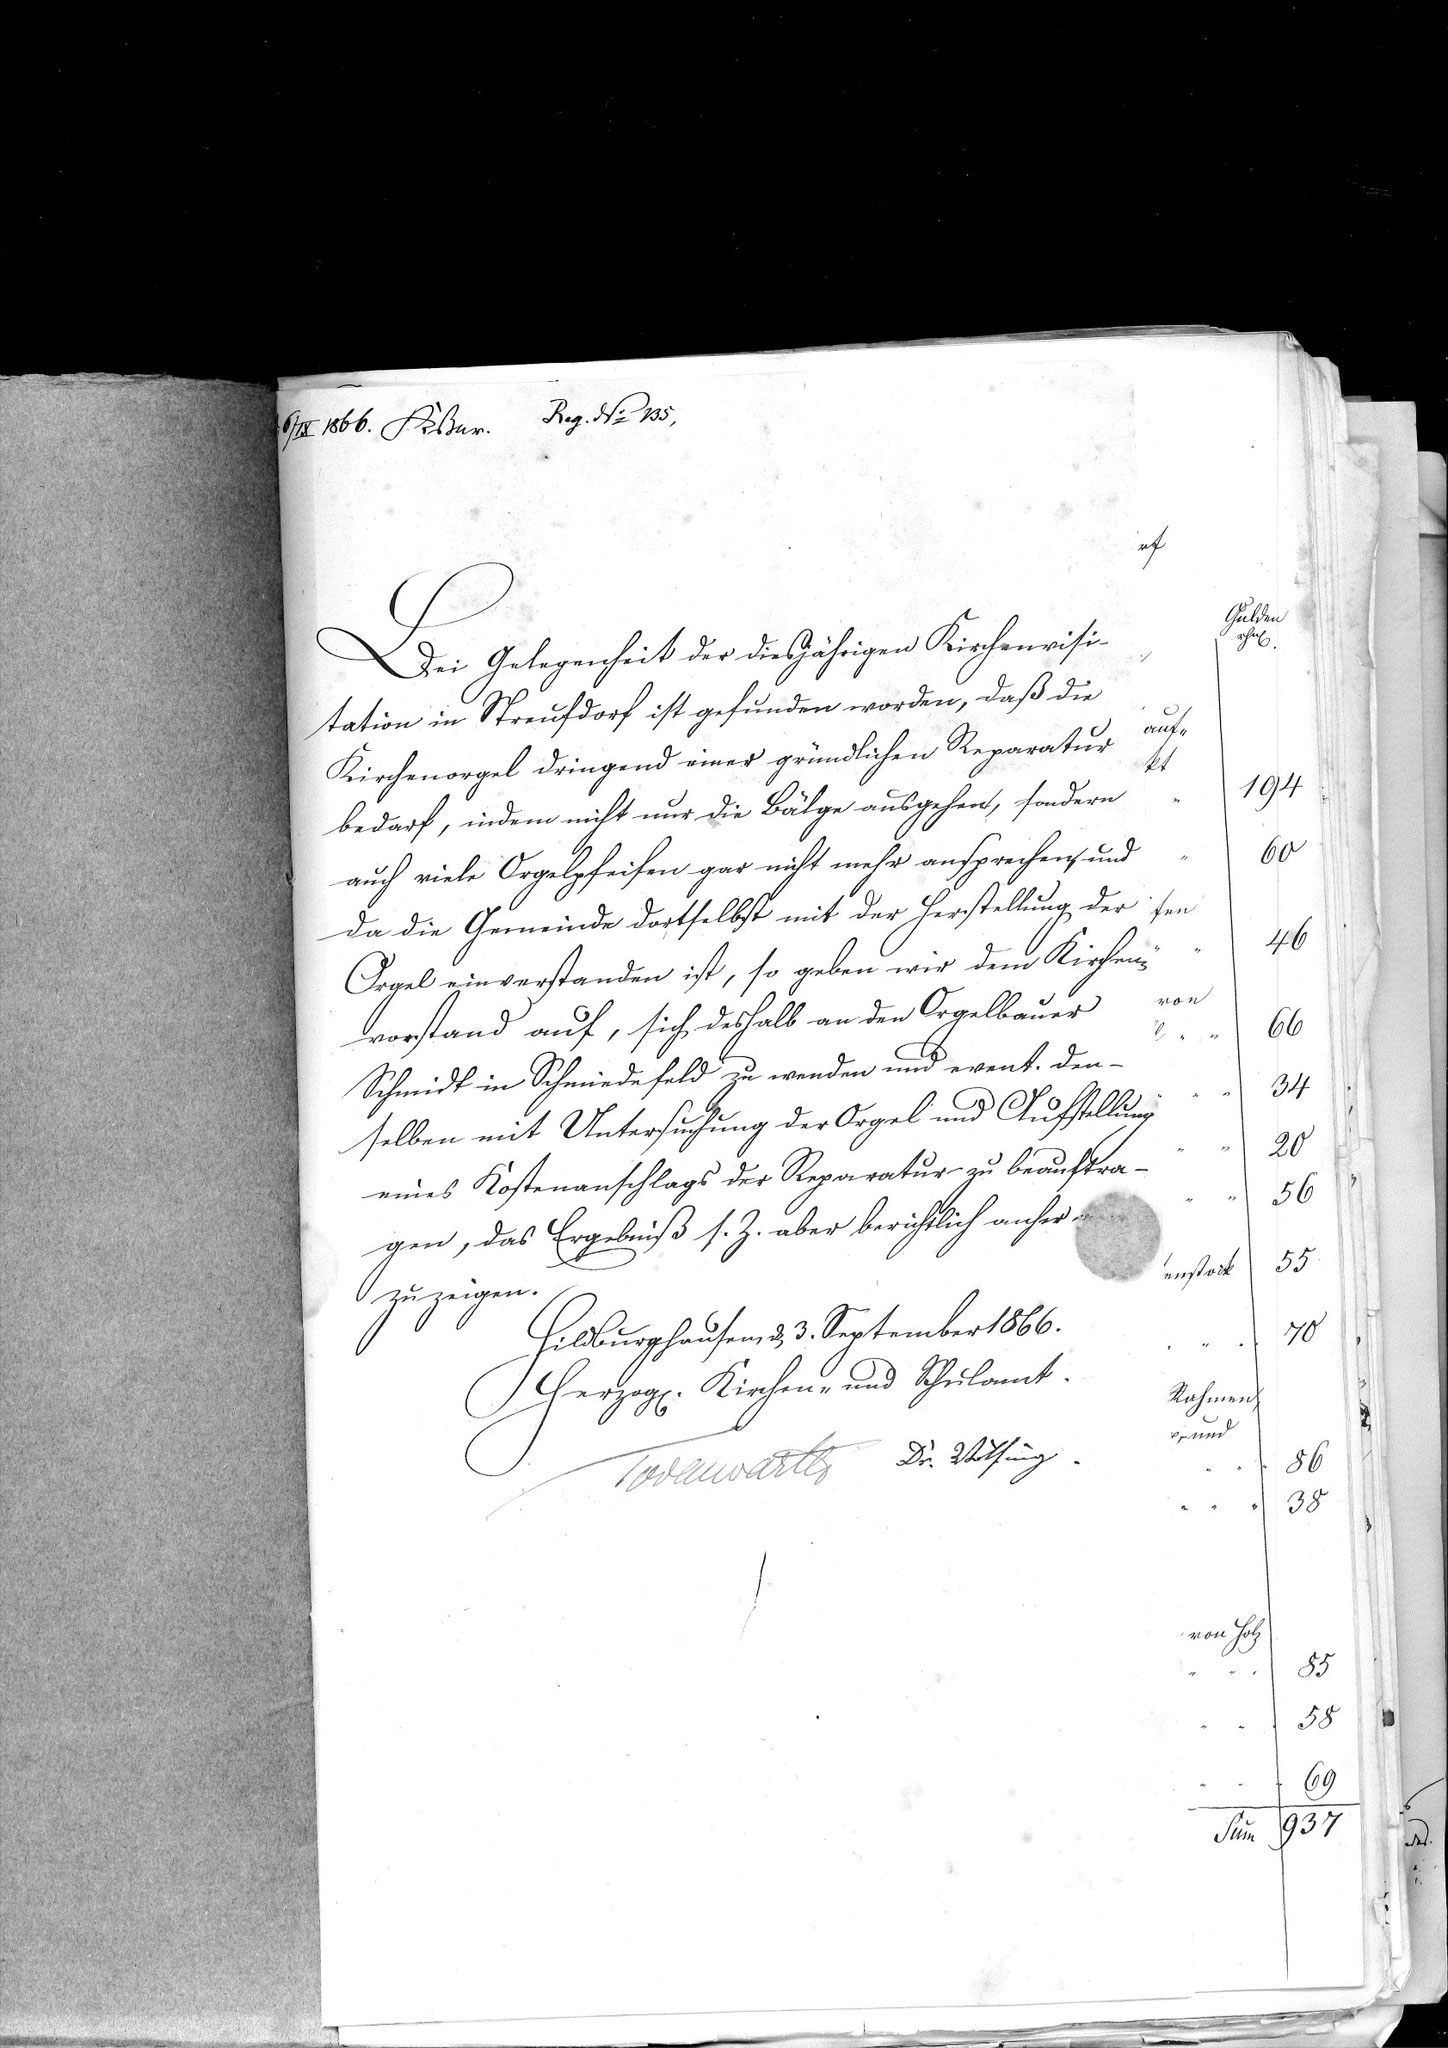 6/IX 1866. Reg. No 135,
Bei Gelegenheit der diesjährigen Kirchenvisi-
tation in Streufdorf ist gefunden worden, daß die
Kirchenorgel dringend einer gründlichen Reparatur
bedarf, indem nicht nur die Bälge ausgehen, sondern
auch viele Orgelpfeifen gar nicht mehr ansprechen, und
da die Gemeinde dortselbst mit der Herstellung der
Orgel einverstanden ist, so geben wir dem Kirchen-
vorstand auf, sich deshalb an den Orgelbauer
Schmidt in Schmiedefeld zu wenden und event. den-
selben mit Untersuchung der Orgel und Aufstellung
eines Kostenanschlags der Reparatur zu beauftra-
gen, das Ergebniß s. Z. aber berichtlich anher
zuzeigen.
Hildburghausen, d. 3. September 1866.
Herzogl. Kirchen- und Schulamt.
Todenwarth Dr. 
Gulden
rhnl.
auf-
kt
" 194
" 60
fen
" " 46
von
" " 66
" " 34
" " 20
" " 56
enstock 55
" " 70
Rahmen,
und
" " 86
" " " 38
von Holz
" " " 85
" " 58
" " " 69
Sum 937